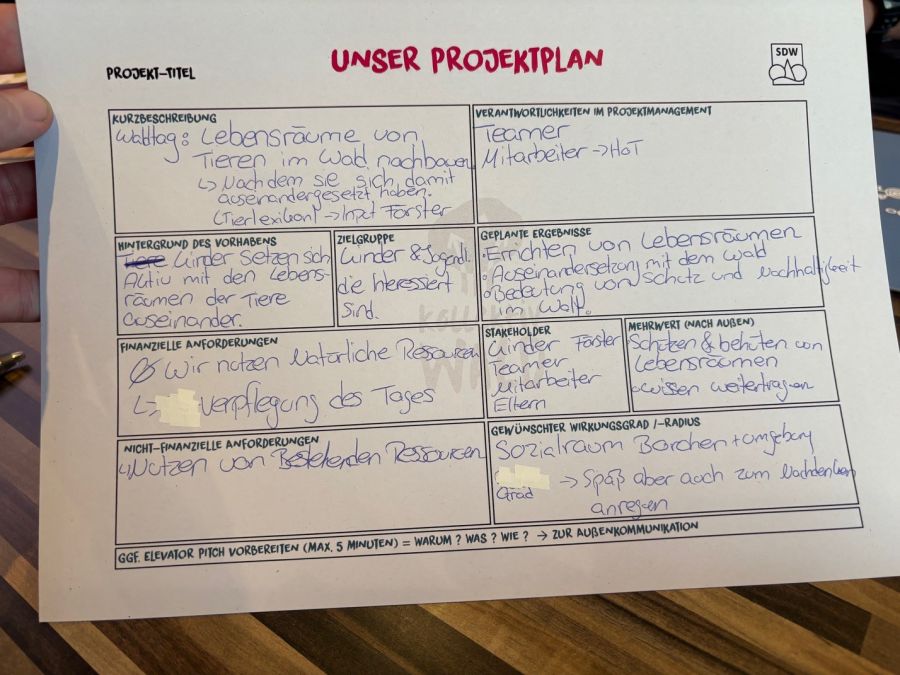 UNSER PROJEKTPLAN
SDW
PROJEKT-TITEL
KURZBESCHREIBUNG
Waldtag: Lebensräume von
Tieren im Wald nachbauen
↳ Nachdem sie sich damit
auseinandergesetzt haben.
(Tierlexikon) → Input Förster
VERANTWORTLICHKEITEN IM PROJEKTMANAGEMENT
Teamer
Mitarbeiter → HoT
HINTERGRUND DES VORHABENS
Kinder setzen sich
Aktiv mit den Lebens-
räumen der Tiere
auseinander.
ZIELGRUPPE
Kinder & Jugendl.
die Interessiert
sind.
GEPLANTE ERGEBNISSE
• Errichten von Lebensräumen
• Auseinandersetzung mit dem Wald
• Bedeutung von Schutz und Nachhaltigkeit
im
FINANZIELLE ANFORDERUNGEN
Ø Wir nutzen Natürliche Ressourcen
↳ verpflegung des Tages
STAKEHOLDER
Kinder Förster
Teamer
Mitarbeiter
Eltern
MEHRWERT (NACH AUßEN)
Schützen & behüten von
Lebensräumen
wissen weitertragen
NICHT-FINANZIELLE ANFORDERUNGEN
↳ Nutzen von Bestehenden Ressourcen
GEWÜNSCHTER WIRKUNGSGRAD /-RADIUS
Sozialraum Borchen + umgebung
Grad → Spaß aber auch zum Nachdenken
anregen
GGF. ELEVATOR PITCH VORBEREITEN (MAX. 5 MINUTEN) = WARUM ? WAS ? WIE ? → ZUR AUßENKOMMUNIKATION